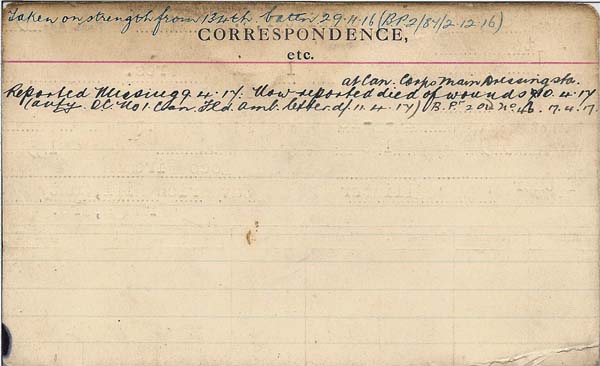 Taken on strength from 134th. battn 29-11-16 (B.P.2/84/2-12-16)
CORRESPONDENCE,
etc.
at Can. Corps Main Dressing sta.
Reported Missing 9.4.17. Now reported died of wounds 10.4.17
(auty. O.C. No 1. Can. Fld. Amb. letter d/ 11.4.17) (B. P. 2 No 46. 17.4.17.